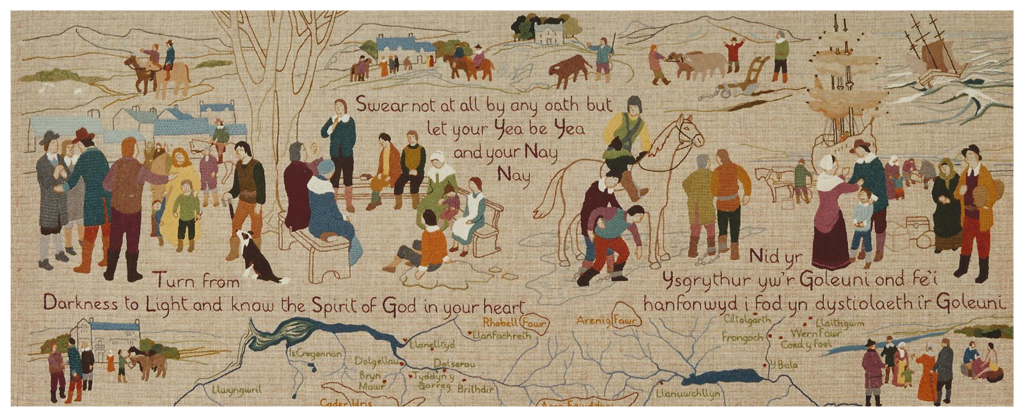 Swear not at all by any oath but
let your Yea be Yea
and your Nay
Nay
Turn from
Darkness to Light and know the Spirit of God in your heart
Nid yr
Ysgrythur yw'r Goleuni ond fe'i
hanfonwyd i fod yn dystiolaeth i'r Goleuni
Rhobell Fawr
Llanfachreth
Llanelltyd
IsCregennan
Dolgellau
Dolserau
Bryn
Mawr
Tyddyn
Garreg
Brithdir
Llwyngwril
Cader Idris
Arenig Fawr
Ciltalgarth
Llaithgwm
Frongoch
Wern Fawr
Coed y foel
Y Bala
Llanuwchllyn